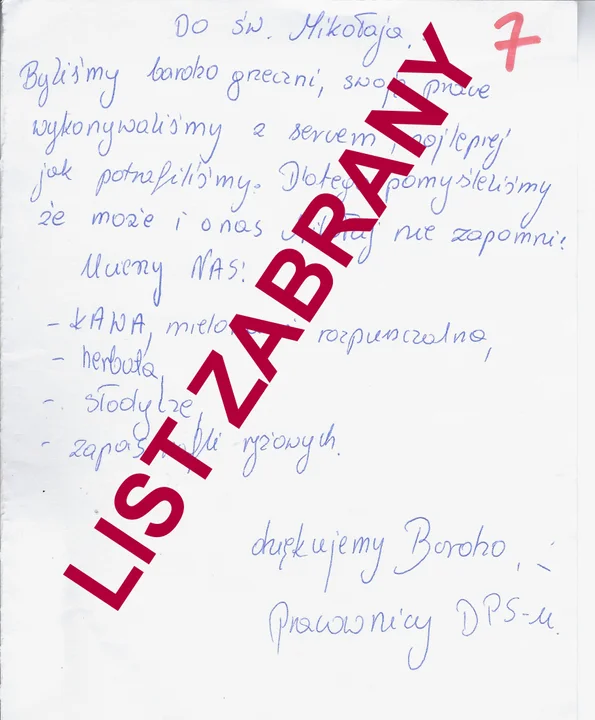 Do św. Mikołaja.
7
Byliśmy bardzo grzeczni, swoje prace
wykonywaliśmy z sercem najlepiej
jak potrafiliśmy. Dlatego pomyśleliśmy
że może i o nas Mikołaj nie zapomni!
Ucieszy NAS:
- KAWA, mielona i rozpuszczalna,
- herbata,
- słodycze,
- zapas wafli ryżowych.
dziękujemy Bardzo,
Pracownicy DPS-u.
LIST ZABRANY